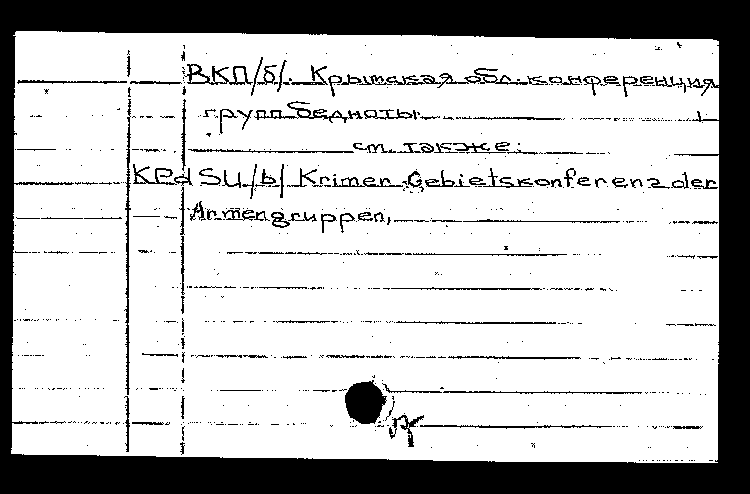 ВКП/б/. Крымская обл. конференция
групп бедноты
см. также:
KPdSU/b/ Krimer Gebietskonferenz der
Armengruppen,